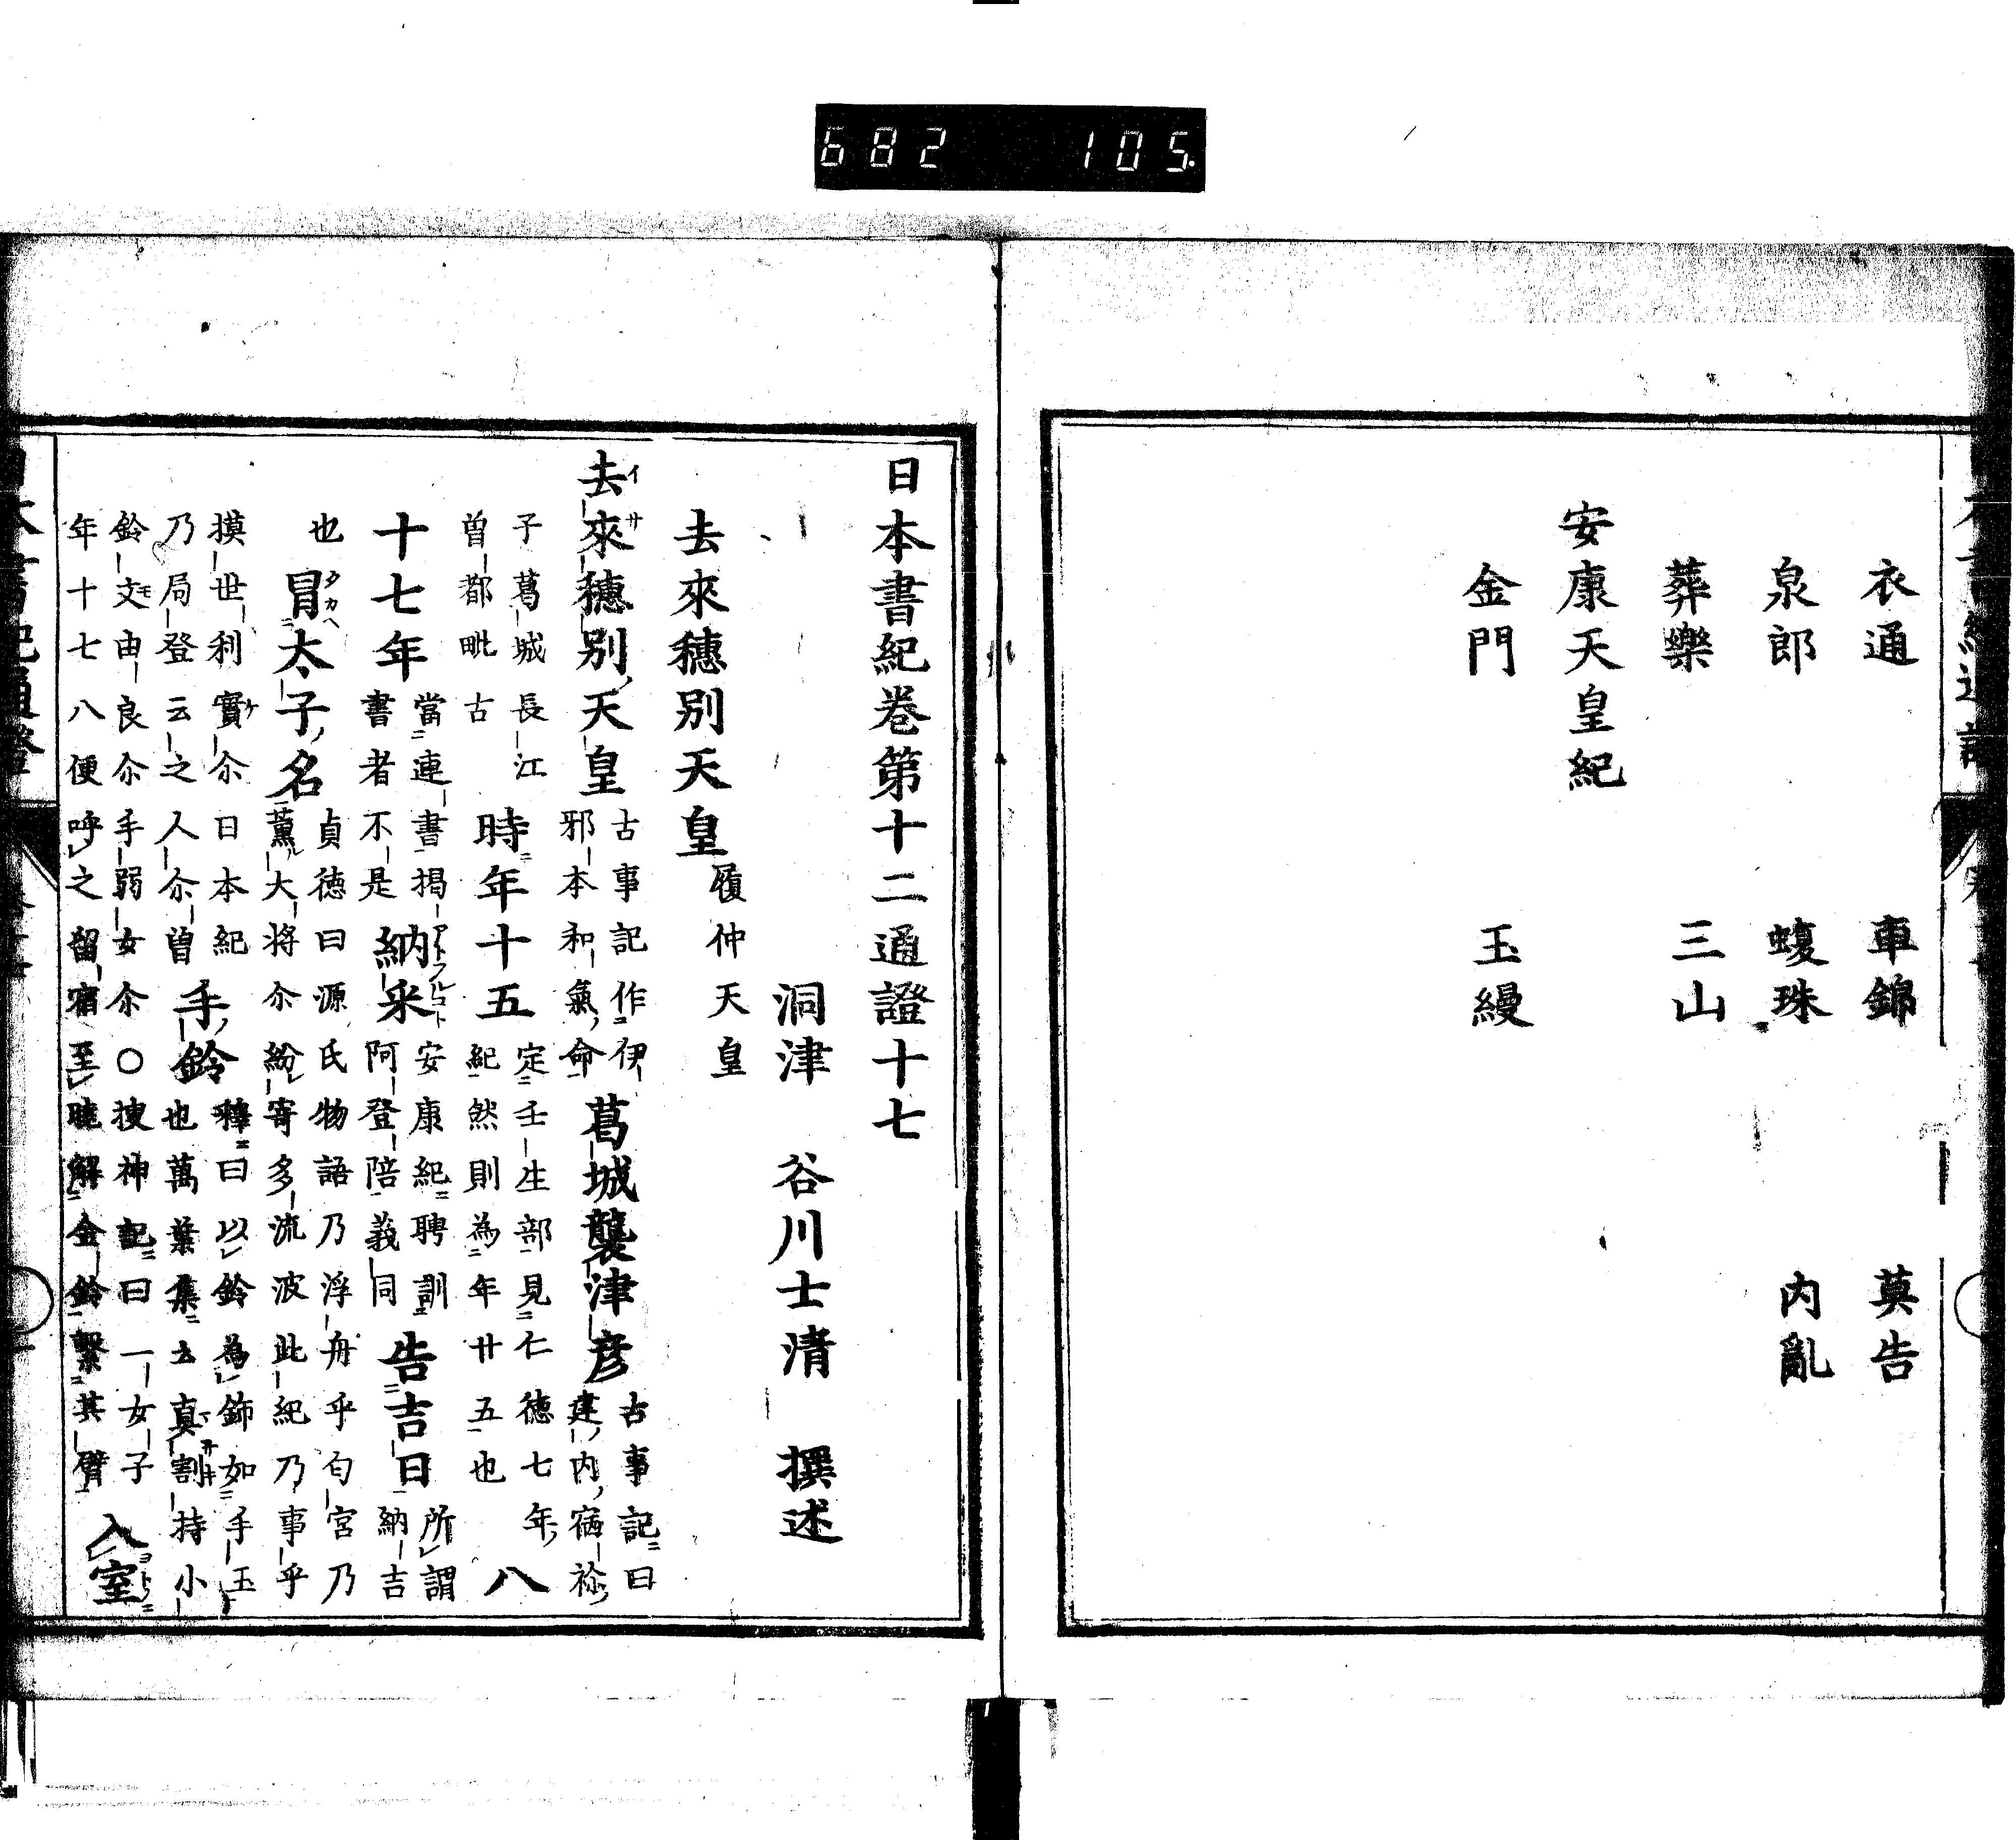 682 105
衣通 車錦 莫告
泉郎 蝮珠 内亂
葬樂 三山
安康天皇紀
金門 玉縵
日本書紀卷第十二通證十七
洞津 谷川士清 撰述
去來穗別天皇 履仲天皇
去來穗別天皇 古事記作伊邪本和氣命 葛城襲津彦 古事記曰建内宿祢
子葛城長江曽都毗古 時年十五 定壬生部見仁德七年紀然則為年廿五也 八
十七年 當連書揭書者不是 納采 安康紀聘訓阿登陪義同 告吉日 所謂納吉
也 冒太子名 貞德曰源氏物語乃浮舟乎匂宮乃薫大将尒紛寄多流波此紀乃事乎
摸世利實尒日本紀乃局登云之人尒曽 手鈴 釋曰以鈴為飾如手玉也萬葉集云真割持小
鈴文由良尒手弱女尒○捜神記曰一女子年十七八便呼之留宿至曉解金鈴繫其臂 入室